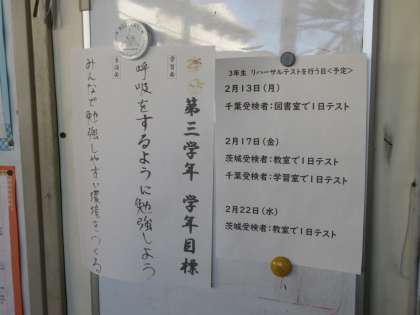 第三学年 学年目標
学習面
呼吸をするように勉強しよう
生活面
みんなで勉強しやすい環境をつくる
3年生 リハーサルテストを行う日<予定>
2月13日(月)
千葉受検者:図書室で1日テスト
2月17日(金)
茨城受検者:教室で1日テスト
千葉受検者:学習室で1日テスト
2月22日(水)
茨城受検者:教室で1日テスト